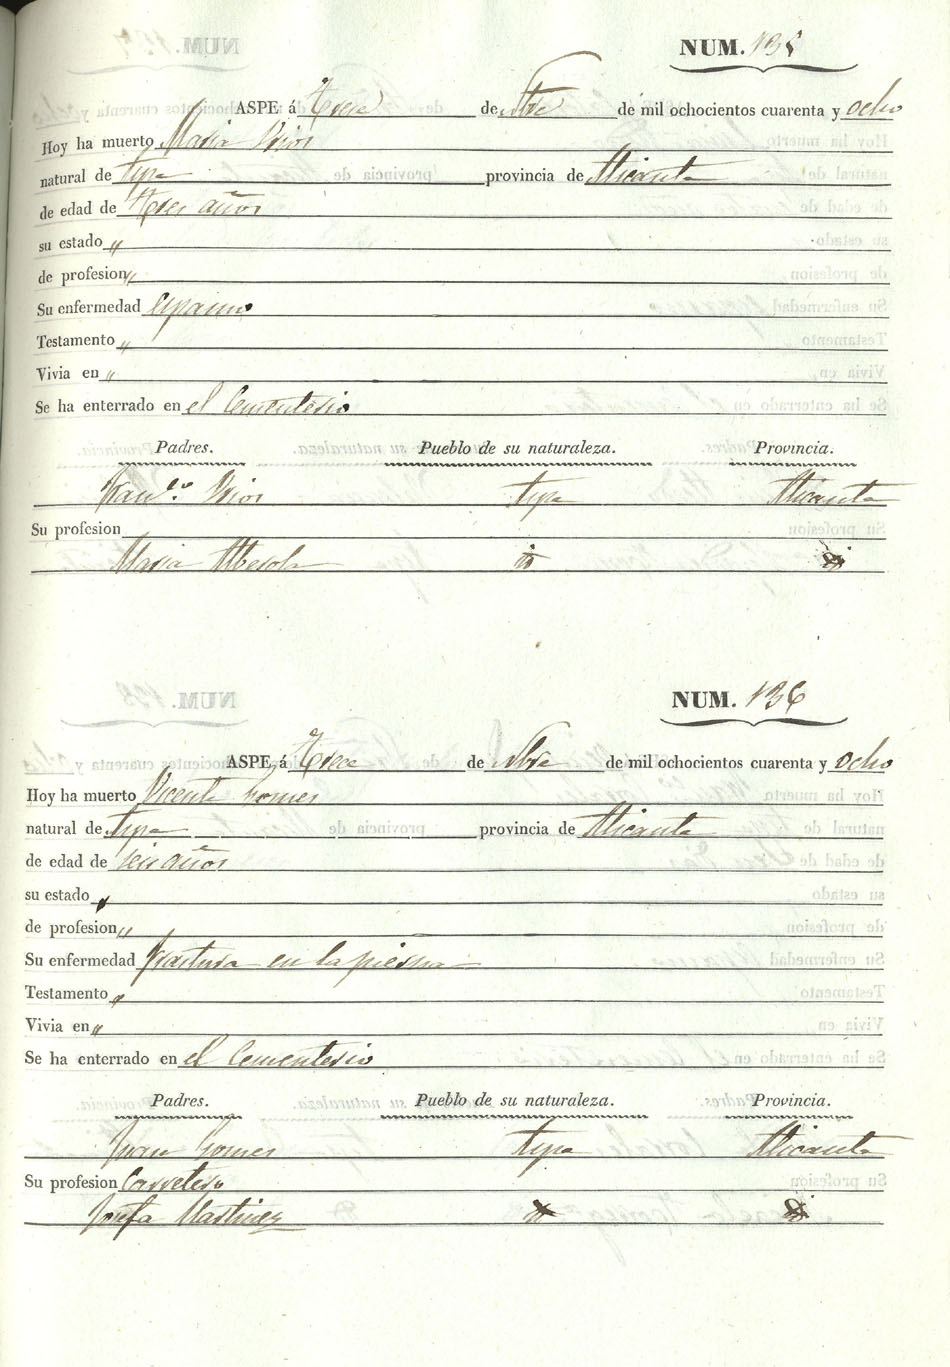 NUM. 135
ASPE á Trece de Nbre de mil ochocientos cuarenta y ocho
Hoy ha muerto Maria
natural de Aspe provincia de Alicante
de edad de tres años
su estado "
de profesion "
Su enfermedad espasmo
Testamento "
Vivia en "
Se ha enterrado en el Cementerio
Padres. Pueblo de su naturaleza. Provincia.
Franco. Aspe Alicante
Su profesion
Maria id
NUM. 136
ASPE á Trece de Nbre de mil ochocientos cuarenta y ocho
Hoy ha muerto Vicente Gomes
natural de Aspe provincia de Alicante
de edad de seis años
su estado "
de profesion "
Su enfermedad fractura en la pierna
Testamento "
Vivia en "
Se ha enterrado en el Cementerio
Padres. Pueblo de su naturaleza. Provincia.
Juan Gomes Aspe Alicante
Su profesion Carretero
Josefa Martinez